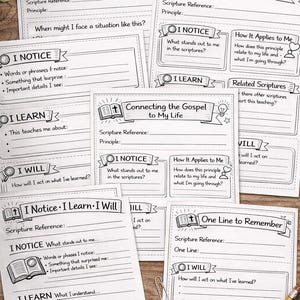 Scripture Reference:
Principle:
When might I face a situation like this?
I NOTICE
What stands out to me
in the scriptures?
How It Applies to Me
How does this principle
relate to my life and
what I'm going through?
I NOTICE
Words or phrases I notice:
Something that surprise
Important details I see:
I LEARN
Related Scriptures
there other scriptures
ort this teaching?
I LEARN
This teaches me about:
WILL
I WILL
How will I act on what I've learned?
Connecting the Gospel
to My Life
Scripture Reference:
Principle:
I NOTICE
What stands out to me
in the scriptures?
How It Applies to Me
How does this principle
relate to my life and
what I'm going through?
I Notice • I Learn • I Will
Scripture Reference:
I NOTICE What stands out to me...
Words or phrases I notice:
Something that surprised me:
Important details I see:
I LEARN What I understand...
One Line to Remember
Scripture Reference:
One Line:
I WILL
How will I act on what I've learned?